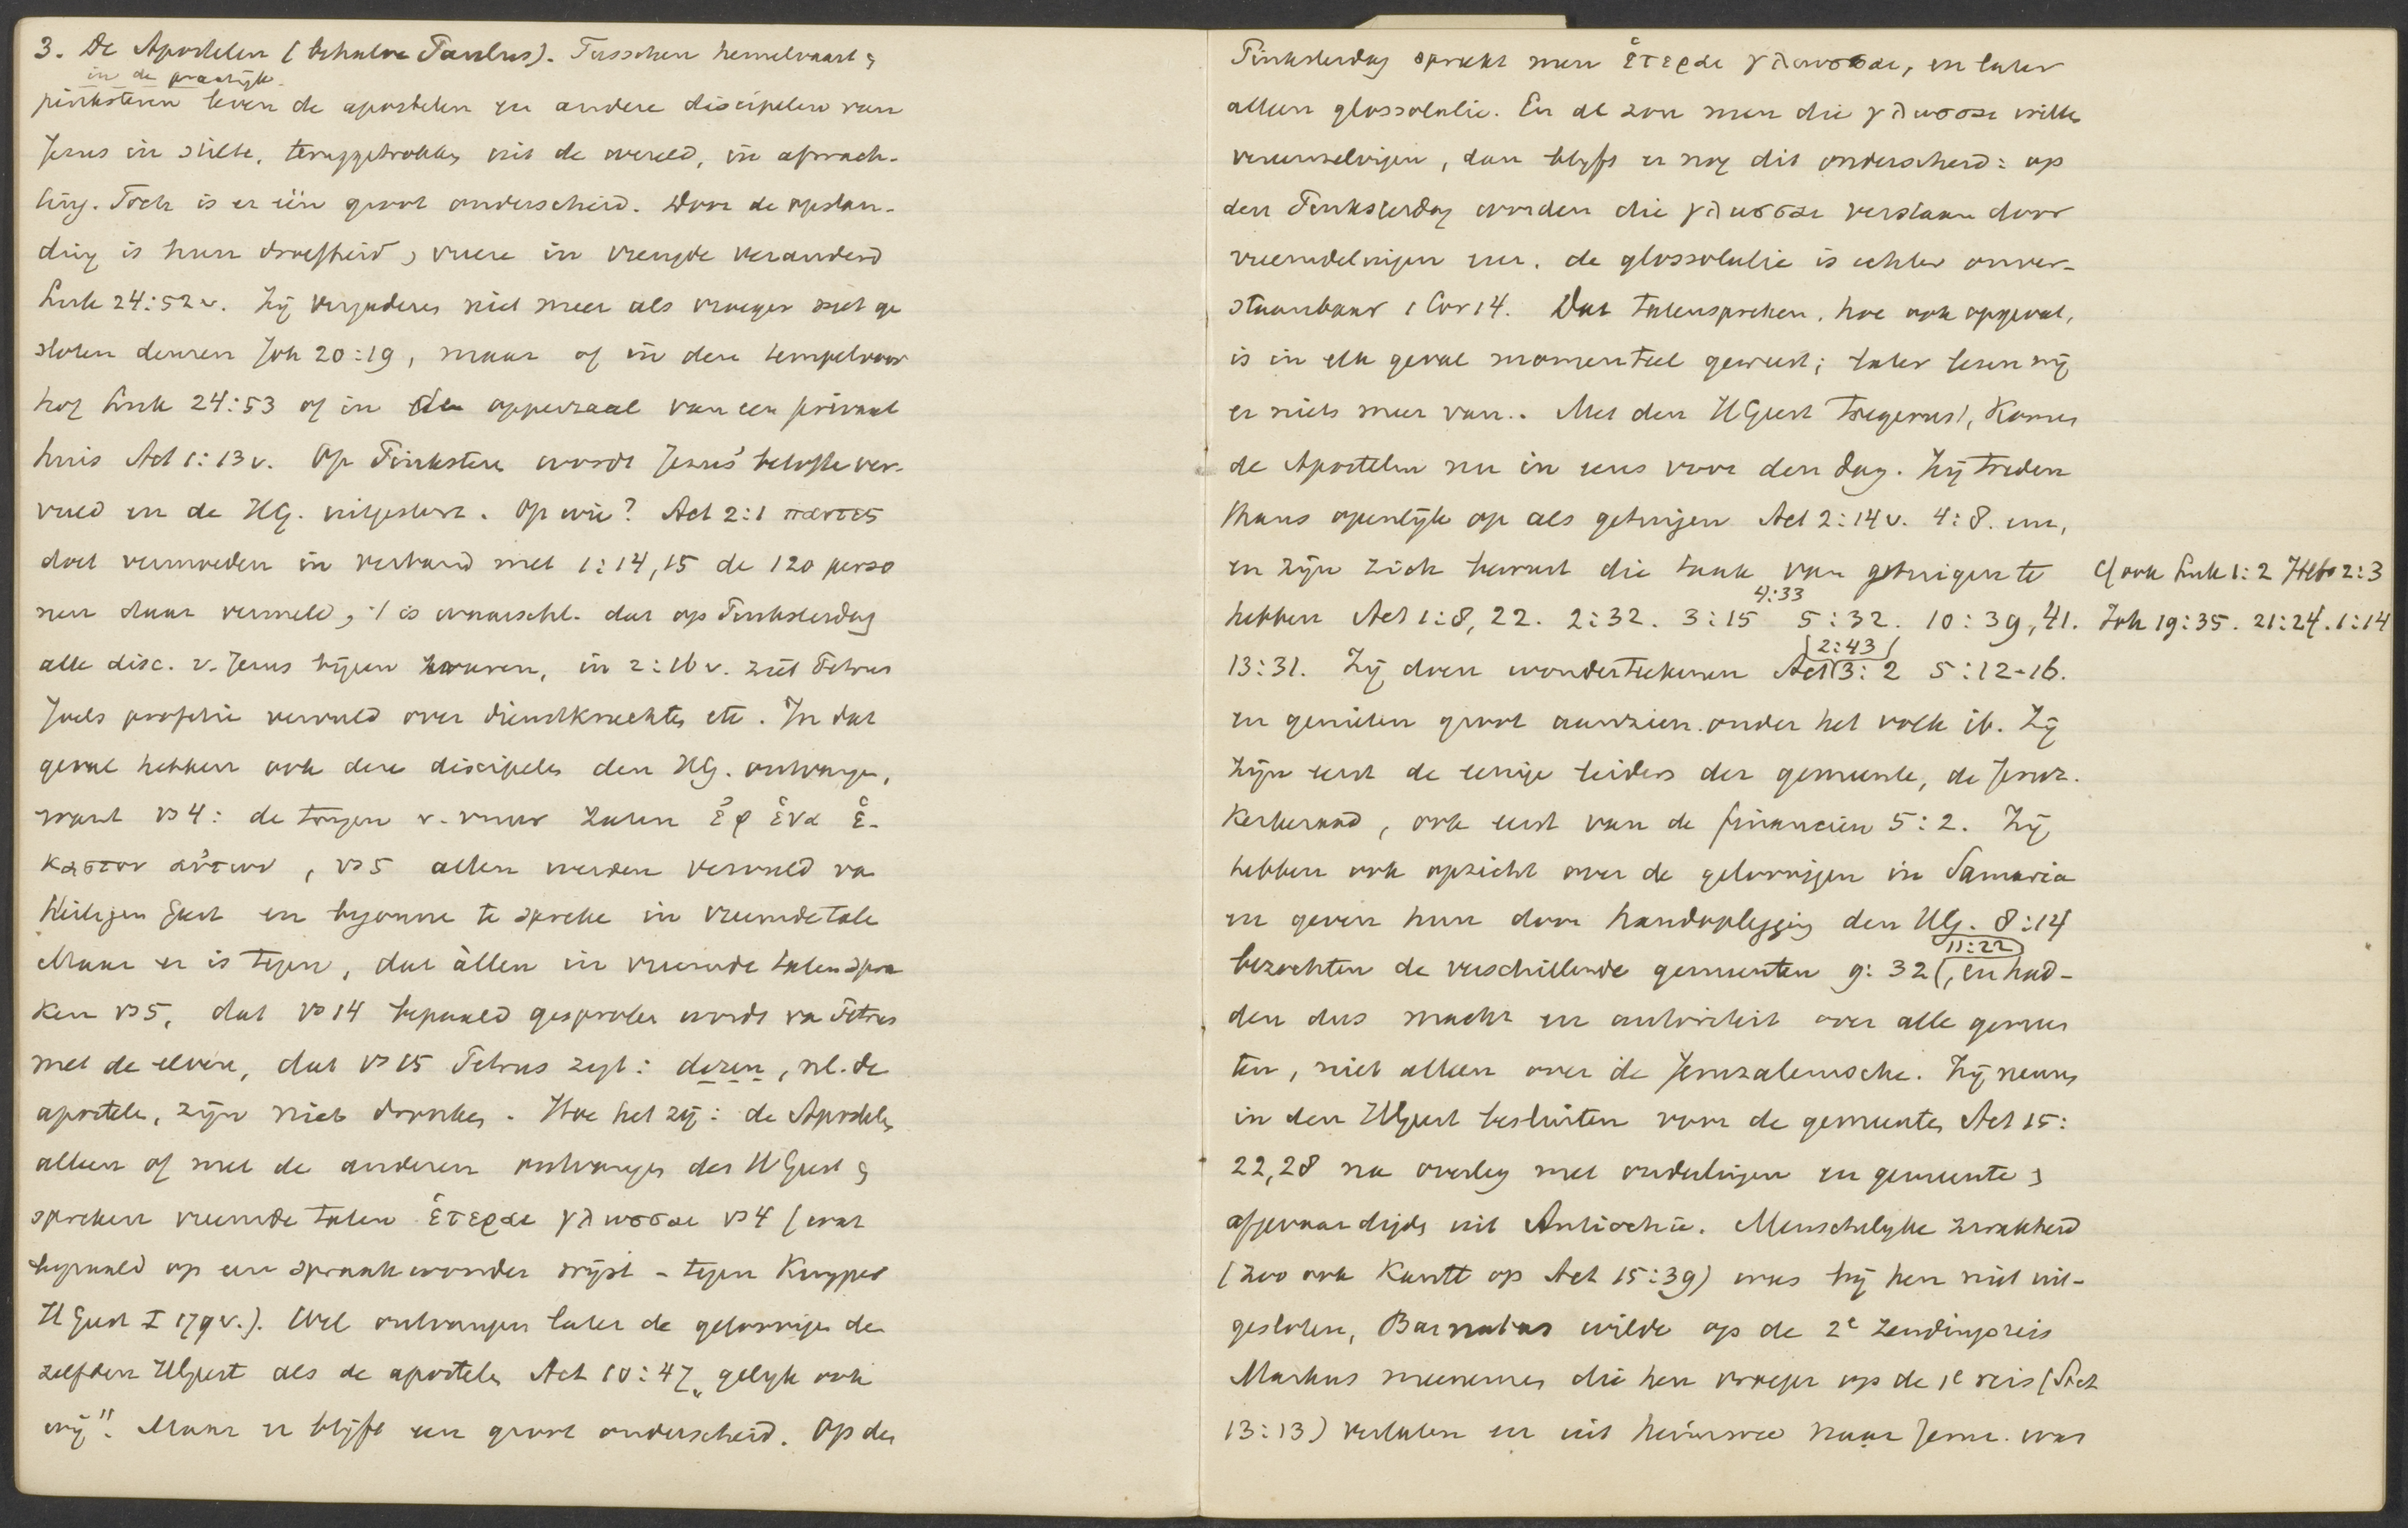 3. De Apostelen (behalve Paulus). Tusschen hemelvaart &
in de praktijk
pinksteren leven de apostelen en andere discipelen van
Jezus in stilte, teruggetrokken uit de wereld, in afwach-
ting. Toch is er één groot onderscheid. Door de opstan-
ding is hun droefheid, vreze in vreugde veranderd
Luk 24:52v. Zij vergaderen niet meer als vroeger met ge
sloten deuren Joh 20:19, maar of in den tempelvoor
hof Luk 24:53 of in de opperzaal van een privaat
huis Act 1:13v. Op Pinkstere wordt Jezus' belofte ver-
vuld en de HG. uitgestort. Op wie? Act 2:1 παντες
doet vermoeden in verband met 1:14,15 de 120 perso
nen daar vermeld, 't is waarschl. dat op Pinksterdag
alle disc. v. Jezus bijeen waren, in 2:16v. ziet Petrus
Joels profetie vervuld over dienstknechten etc. In dat
geval hebben ook deze discipelen den HG. ontvangen,
want vs 4: de tongen v. vuur zaten ἐφ ἑνα ἑ-
καστον αὐτων, vs 5 allen werden vervuld va
Heiligen Geest en begonne te spreke in vreemde tale
Maar er is tegen, dat àllen in vreemde talen spra
ken vs 5, dat vs 14 bepaald gesproken wordt va Petrus
met de elven, dat vs 15 Petrus zegt: dezen, nl. de
apostele, zijn niet dronken. Hoe het zij: de Apostelen
alleen of met de anderen ontvangen des HGeest &
spreken vreemde talen ἑτεραι γλωσσαι vs 4 (wat
bepaald op een spraakwonder wijst - tegen Kuyper
HGeest I 179v.). Wel ontvangen later de geloovigen de
zelfden HGeest als de apostelen Act 10:47 „gelijk ook
wij". Maar er blijft een groot onderscheid. Op den
Pinksterdag spreekt men ἑτεραι γλωσσαι, en later
alleen glossolalie. En al zou men die γλωσσαι willen
vereenzelvigen, dan blijft er nog dit onderscheid: op
den Pinksterdag worden die γλωσσαι verstaan door
vreemdelingen enz. de glossolalie is echter onver-
staanbaar 1 Cor 14. Dat talenspreken, hoe ook opgevat,
is in elk geval momenteel geweest; later lezen wij
er niets meer van. Met den HGeest toegerust, komen
de Apostelen nu in eens voor den dag. Zij treden
thans openlijk op als getuigen Act 2:14v. 4:8. enz,
en zijn zich bewust die taak van getuigen te
cf ook Luk 1:2 Hebr 2:3
4:33
hebben Act 1:8, 22. 2:32. 3:15 5:32. 10:39, 41.
Joh 19:35. 21:24. 1:14
2:43
13:31. Zij doen wonderteekenen Act 3:2 5:12-16.
en genieten groot aanzien onder het volk ib. Zij
zijn eerst de eenige leiders der gemeente, de Jeruz.
Kerkeraad, ook eerst van de financiën 5:2. Zij
hebben ook opzicht over de geloovigen in Samaria
en geven hun door handoplegging den HG. 8:14
11:22
bezochten de verschillende gemeenten 9:32 (, en had-
den dus macht en autoriteit over alle gemeen
ten, niet alleen over de Jeruzalemsche. Zij nemen
in den HGeest besluiten voor de gemeenten Act 15:
22,28 na overleg met ouderlingen en gemeente &
afgevaardigds uit Antiochië. Menschelijke zwakheid
(zoo ook Kautt op Act 15:39) was bij hen niet uit-
gesloten, Barnabas wilde op de 2e zendingsreis
Markus meenemen die hen vroeger op de 1e reis (Act
13:13) verlaten en uit heimwee naar Jeruz. was